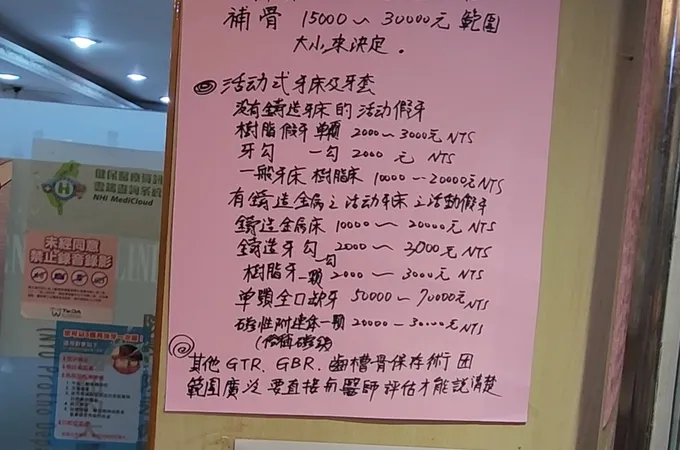 補骨 15000~30000元 範圍
大小來決定。
◎ 活动式牙床及牙套
没有鑄造牙床的活动假牙
樹脂假牙單顆 2000~3000元 NTS
牙勾 一勾 2000 元 NTS
一般牙床 樹脂床 10000~20000元 NTS
有鑄造金屬之活动牙床之活動假牙
鑄造金屬床 10000~20000元 NTS
鑄造牙勾 一勾 2000~3000元 NTS
樹脂牙 一顆 2000~3000元 NTS
單顎全口 50000~70000元 NTS
磁性附 一顆 20000~30000元 NTS
◎ 其他 GTR、GBR、齒槽骨保存術 因
範圍廣泛要直接由醫師評估才能說清楚
健保醫療資訊
雲端查詢系統
NHI MediCloud
未經同意
禁止錄音錄影